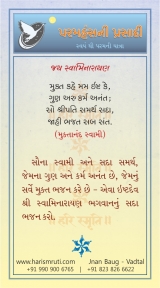 પરમહંસની પ્રસાદી
સ્વયં શ્રી ઘરમાંની વાણી
જય સ્વામિનારાયણ
મુક્ત કહે મમ ઈષ્ટ કે,
ગુણ અરુ કર્મ અનંત;
સો શ્રીપતિ સમર્થ સદા,
જાહી ભજત સબ સંત.
(મુક્તાનંદ સ્વામી)
સૌના સ્વામી અને સદા સમર્થ,
જેમના ગુણ અને કર્મ અનંત છે, જેમનું
સર્વે મુક્ત ભજન કરે છે - એવા ઇષ્ટદેવ
શ્રી સ્વામિનારાયણ ભગવાનનું સદા
ભજન કરો.
www.harismruti.com
Jnan Baug - Vadtal
+91 990 900 6765
+91 823 826 6622